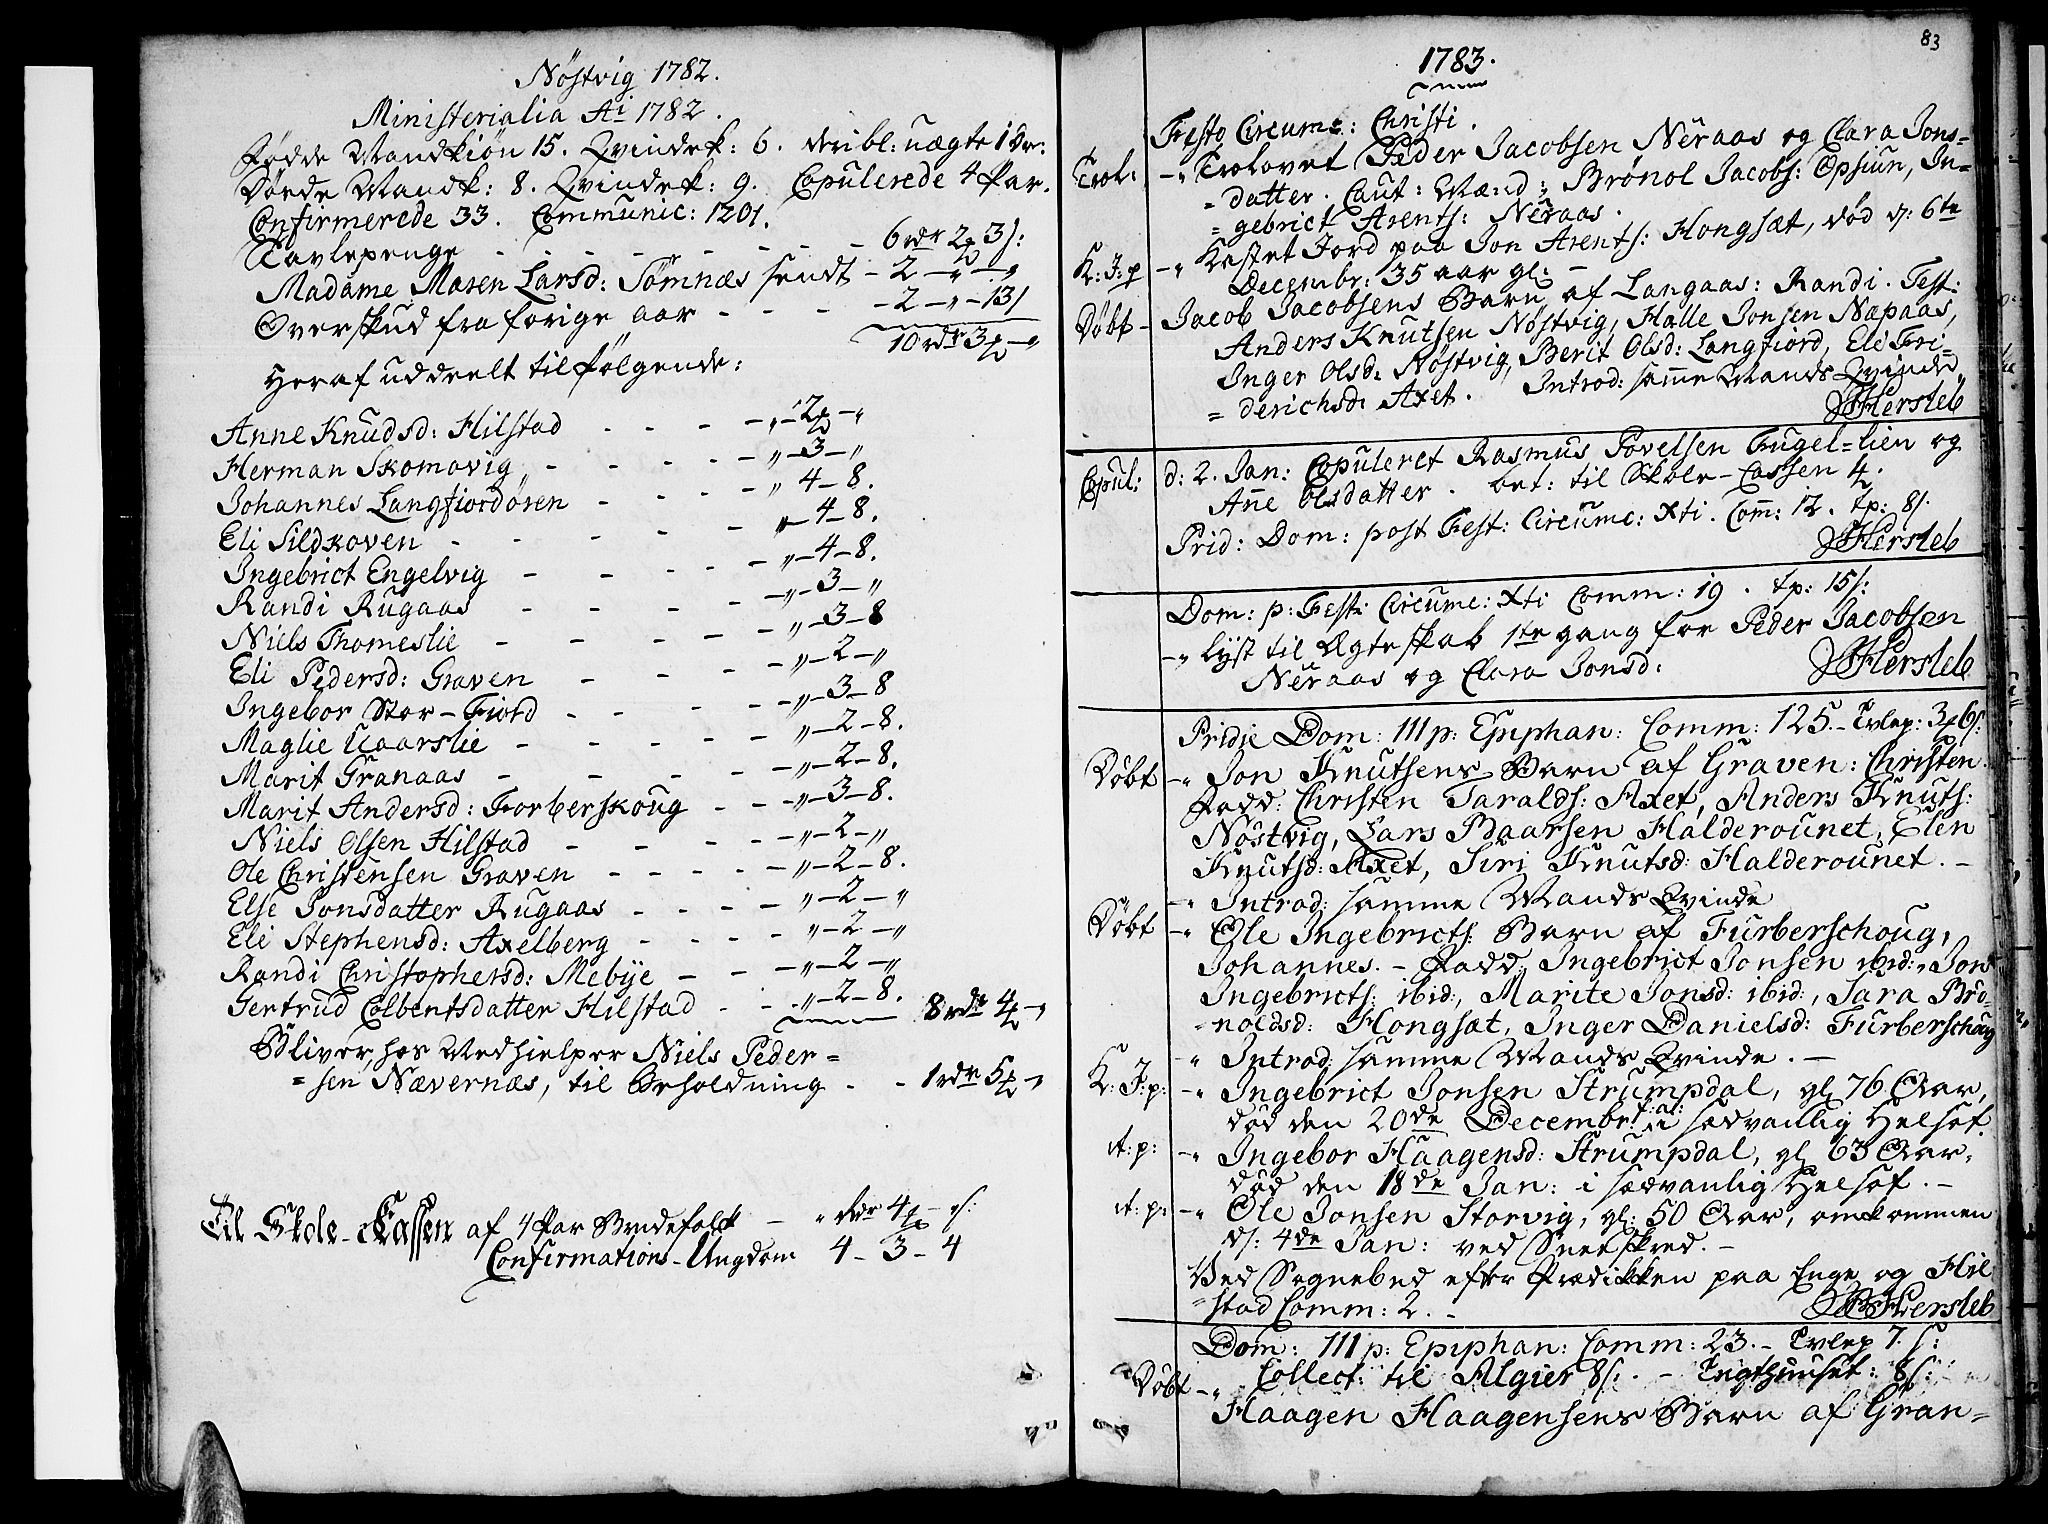 Nöstvig 1782.
Ministerialia Ai 1782.
Fødde Mandkiön 15. Qvindek: 6. deribl: uægte 1
Døede Mandk: 8. Qvindek: 9. Copulerede 4 Par.
Confirmerede 33. Communic: 1201.
Tavlepenge - - - - - - - 6 rdr 2 3 s:
Madame Maren Larsd: Sömnæs sendt - 2 - „ - „
Overskud fra forige aar - - - - 2 - „ - 13 s
10 rdr 3 - „
Heraf uddeelt til følgende:
Anne Knudsd: Hilstad - - - - „ - 2 - „
Herman Skomovig - - - - „ - 3 - „
Johannes Langfiordören - - - - „ 4 - 8.
Eli Sildkoven - - - - „ - 4 - 8.
Ingebrict Engelvig - - - - „ - 4 - 8.
Randi Rugaas - - - - „ - 3 - „
Niels Thomeslie - - - - „ - 3 - 8
Eli Pedersd: Graven - - - - „ - 2 - „
Ingebor Stor-Fiord - - - - „ - 3 - 8
Maglie Uaarslie - - - - „ - 2 - 8.
Marit Granaas - - - - „ - 2 - 8.
Marit Andersd: Forberskoug - - - „ - 3 - 8.
Niels Olsen Hilstad - - - - „ - 2 - „
Ole Christensen Graven - - - - „ - 2 - 8.
Else Jonsdatter Rugaas - - - - „ - 2 - „
Eli Stephensd: Axelberg - - - - „ - 2 - „
Randi Christophersd: Mebye - - - „ - 2 - „
Gertrud Colbentsdatter Hilstad - - „ - 2 - 8. 8 rdr 4 - „
Bliver hos Medhielper Niels Peder=
=sen Nævernæs, til Beholdning - - 1 rdr 5 - „
Til Skole-Kassen af 4 Par Brudefolck - „ rdr 4 - s:
Confirmations-Ungdom 4 - 3 - 4
83
1783.
Festo Circumc: Christi.
Trol: -„ Trolovet Peder Jacobsen Neraas og Clara Jons=
=datter. Caut: Mænd: Brönol Jacobs: Opsiun, In=
=gebrict Arents: Neraas.
K: J: p -„ Kastet Jord paa Jon Arents: Hongsæt, död d: 6te
Decembr: 35 aar gl: -
Döbt - Jacob Jacobsens Barn af Langaas: Randi. Test:
Anders Knutsen Nöstvig, Halle Jonsen Næpaas,
Inger Olsd: Nöstvig, Berit Olsd: Langfiord, Eli Fri=
=derichsd: Axet. Introd: samme Mands Qvinde.
Hersleb
Copul: d: 2. Jan: Copuleret Rasmus Povelsen Fugel=lien og
Anne Olsdatter. bet: til Skole-Cassen 4
Prid: Dom: post Fest: Circumc: Xti. Comm: 12. tp: 8 s.
Hersleb
Dom: p: Fest: Circumc: Xti Comm: 19. tp: 15 s:
-„ Lyst til Ægteskab 1te gang for Peder Jacobsen
Neraas og Clara Jonsd:
Hersleb
Pridie Dom: III p: Epiphan: Comm: 125. - Tvlep: 3 6 s:
Döbt -„ Jon Knutsens Barn af Graven: Christen.
Fadd: Christen Taralds: Axet, Anders Knuts:
Nöstvig, Lars Baarsen Halderounet, Elen
Knutsd: Axet, Siri Knutsd: Halderounet. -
-„ Introd: samme Mands Qvinde
Döbt -„ Ole Ingebricts: Barn af Furberschoug,
Johannes. - Fadd: Ingebrict Jonsen ibid:, Jon
Ingebricts: ibid:, Marite Jonsd: ibid:, Sara Brö=
=noldsd: Hongsæt, Inger Danielsd: Furberschoug
-„ Introd: samme Mands Qvinde. -
K: J: p: -„ Ingebrict Jonsen Strumpdal, gl 76 Aar,
död den 20de Decembr: i sædvanlig Helsot.
it: p: -„ Ingebor Haagensd: Strumpdal, gl 63 Aar,
död den 18de Jan: i sædvanlig Helsot. -
it: p: -„ Ole Jonsen Storvig, gl: 50 Aar, omkommen
d: 4de Jan: ved Sneeskred. -
Ved Sognebud efter Prædikken paa Enge og Hil
=stad Comm: 2. -
Hersleb
Dom: III p: Epiphan: Comm: 23. - Tvlep 7. s:
Collect: til Algier 8 s. - Tugthuuset: 8 s:
Döbt -„ Haagen Haagensens Barn af Gran=